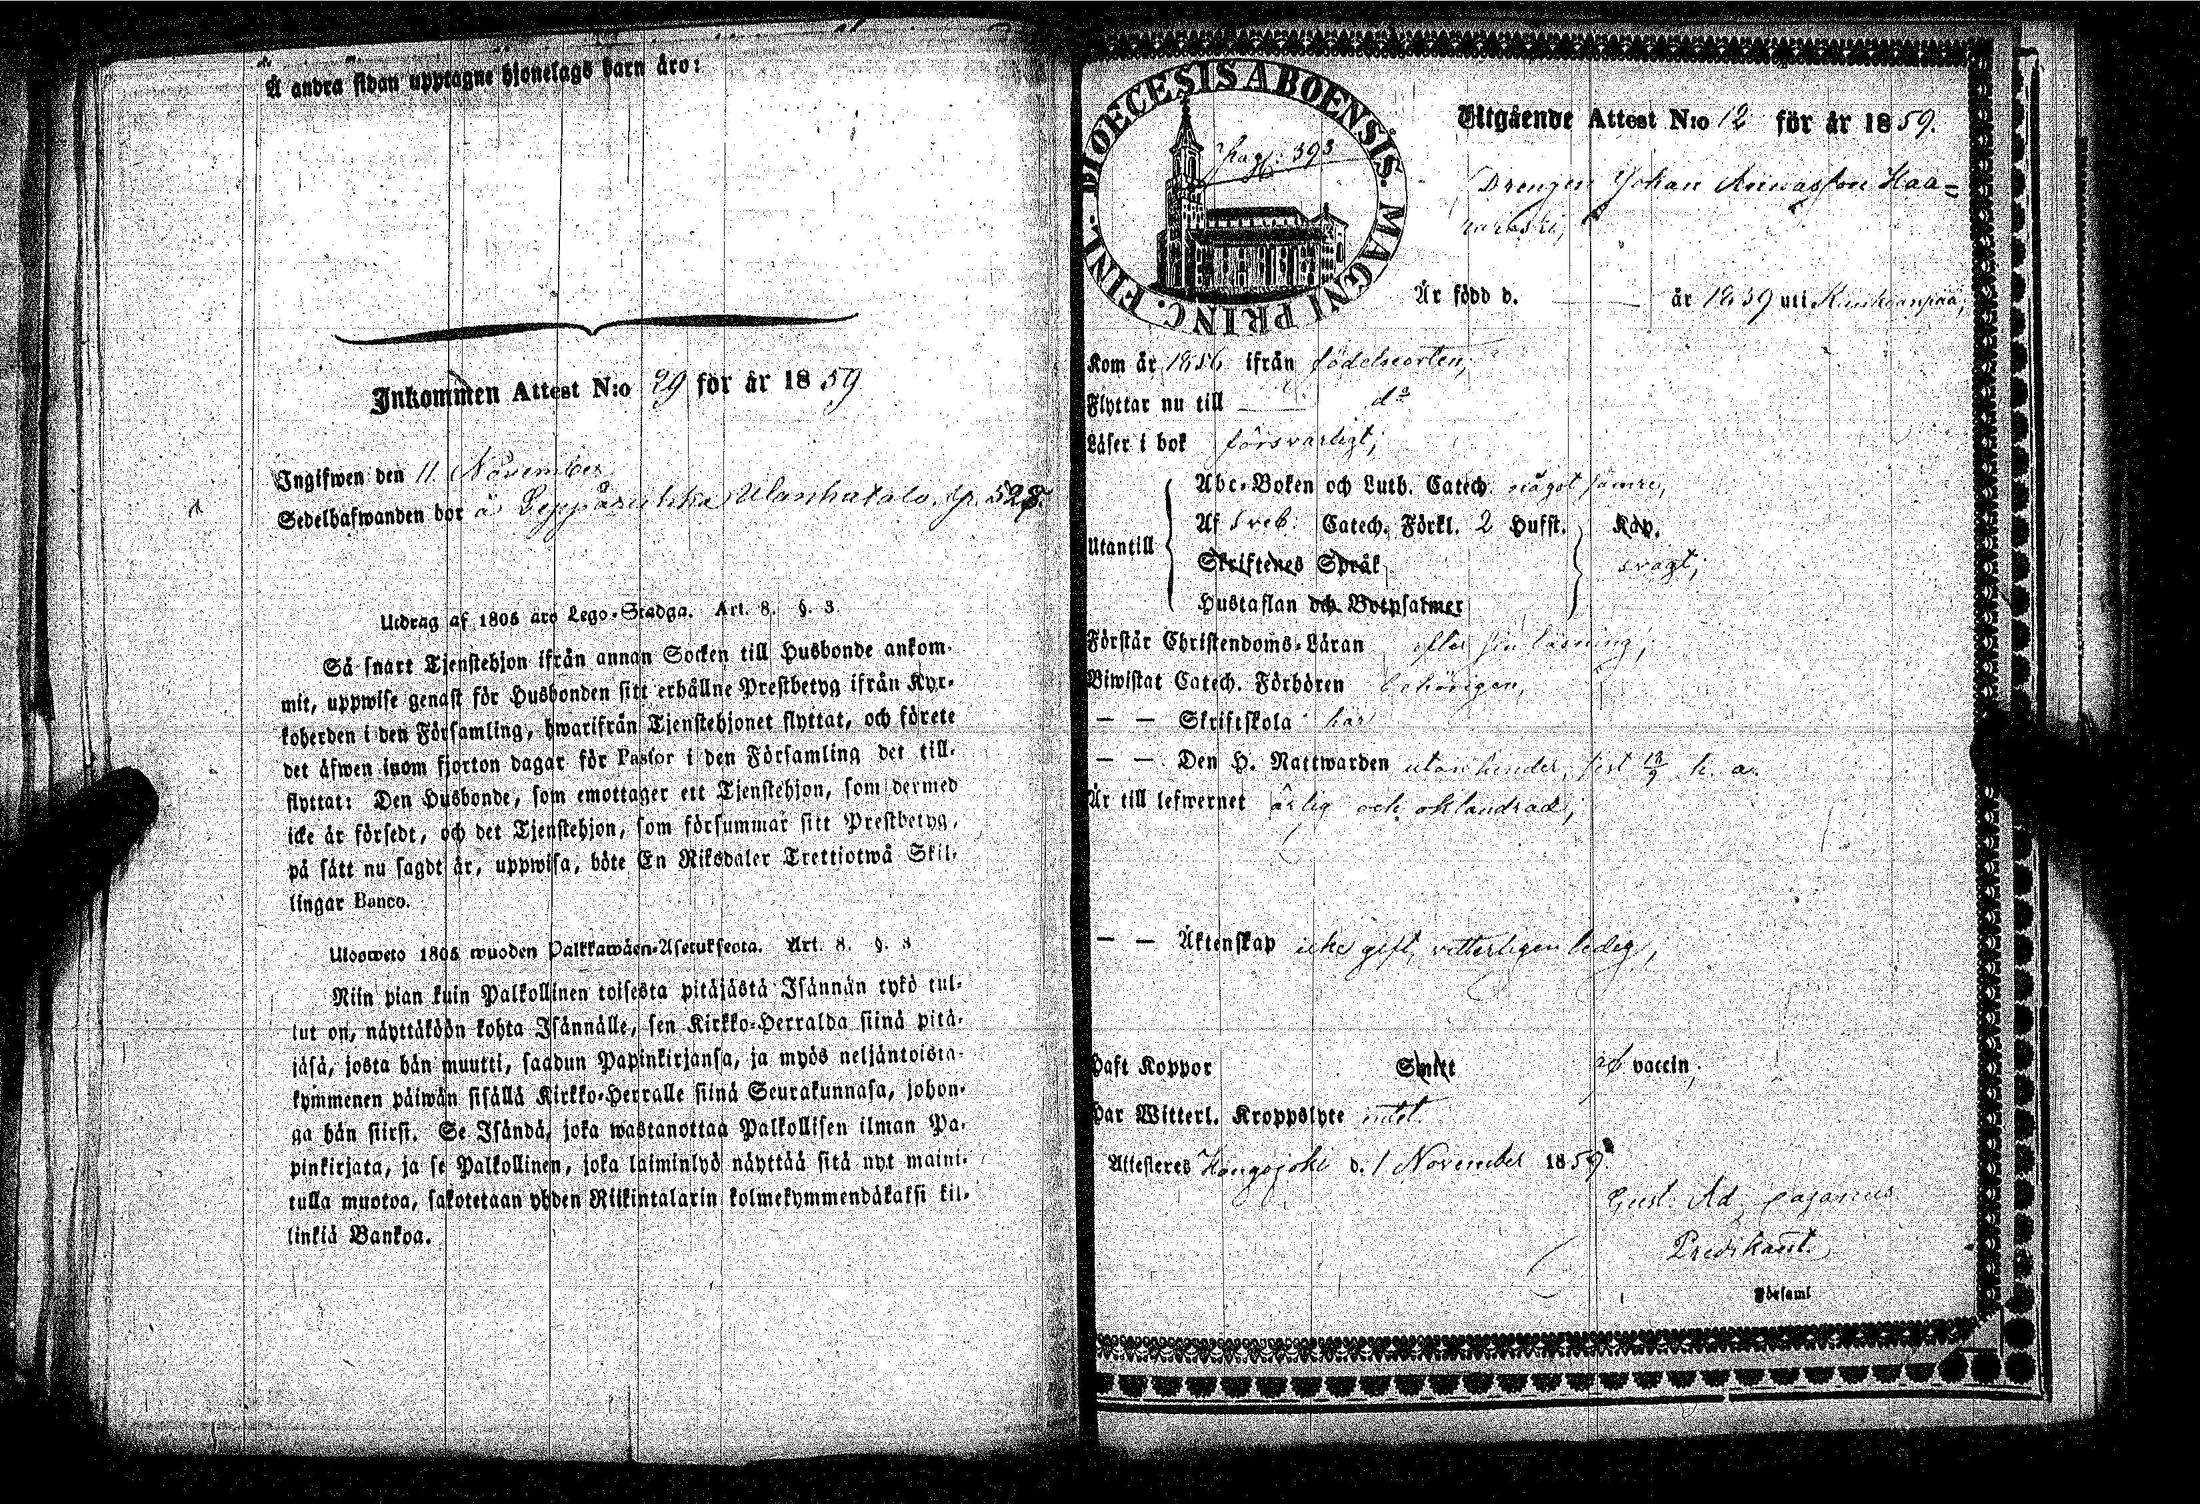 Å andra sidan upptagne hjonelags barn äro:
Inkommen Attest N:o 29 för år 1859
Ingifwen den 11 November
Sedelhafwanden bor å Ylanhatalo. p. 528.
Utdrag af 1805 års Lego-Stadga. Art. 8. §. 3
Så snart Tjenstehjon ifrån annan Socken till Husbonde ankom-
mit, uppwise genast för Husbonden sitt erhållne Prestbetyg ifrån Kyr-
koherden i den Församling, hwarifrån Tjenstehjonet flyttat, och förete
det äfwen inom fjorton dagar för Pastor i den Församling det till-
flyttat: Den Husbonde, som emottager ett Tjenstehjon, som dermed
icke är försedt, och det Tjenstehjon, som försummar sitt Prestbetyg,
på sätt nu sagdt är, uppwisa, böte En Riksdaler Trettiotwå Skil-
lingar Banco.
Ulosweto 1805 wuoden Palkkawäen-Asetuksesta. Art. 8. §. 3
Niin pian kuin Palkollinen toisesta pitäjästä Isännän tykö tul-
lut on, näyttäköön kohta Isännälle, sen Kirkko-Herralda siinä pitä-
jäsä, josta hän muutti, saadun Papinkirjansa, ja myös neljäntoista-
kymmenen päiwän sisällä Kirkko-Herralle siinä Seurakunnasa, johon-
ga hän siirsi. Se Isändä, joka wastanottaa Palkollisen ilman Pa-
pinkirjata, ja se Palkollinen, joka laiminlyö näyttää sitä nyt maini-
tulla muotoa, sakotetaan yhden Riikintalarin kolmekymmendäkaksi kil-
linkiä Bankoa.
DIOECESIS ABOENSIS. MAGNI PRINC. FINL.
Pag: 393
Utgående Attest N:o 12 för år 1859.
Drengen Johan Haa-
Är född d. — år 1839 uti Kankaanpää,
Kom år 1856 ifrån födelseorten,
Flyttar nu till — d:o
Läser i bok försvarligt,
Utantill
Abc-Boken och Luth. Catech. något sämre,
Af Sveb. Catech. Förkl. 2 Hufst. Kap.
Skriftenes Språk
svagt,
Hustaflan och Botpsalmer
Förstår Christendoms-Läran efter sin läsning,
Biwistat Catech. Förhören behörigen,
— — Skriftskola har
— — Den H. Nattwarden utan hinder, sist 18/9 h. a.
Är till lefwernet ärlig och oklandrad,
— — Äktenskap icke gift, vetterligen ledig,
Haft Koppor Smitt af vaccin,
Har Witterl. Kroppslyte intet.
Attesteres Hongojoki d. 1 November 1859.
Gust. Ad. Cajanus
Predikant.
Församl